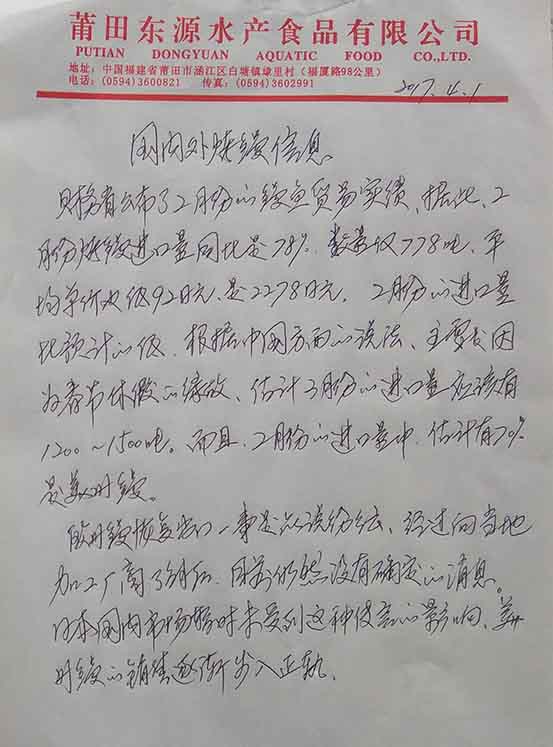 莆田东源水产食品有限公司
PUTIAN DONGYUAN AQUATIC FOOD CO.,LTD.
地址：中国福建省莆田市涵江区白塘镇埭里村（福厦路98公里）
电话：(0594)3600821 传真：(0594)3602991
2017.4.1
国内外烤鳗信息
财务省公布了2月份的鳗鱼贸易实绩、据此、2
月份烤鳗进口量同比是78%、数量仅778吨、平
均单价也低92日元、是2278日元。2月份的进口量
比预计的低、根据中国方面的说法、主要是因
为春节休假的缘故、估计3月份的进口量应该有
1200～1500吨。而且、2月份的进口量中、估计有70%
是美洲鳗。
欧洲鳗恢复出口一事是众说纷纭、经过向当地
加工厂商了解后、目前仍然没有确定的消息。
日本国内市场暂时未受到这种传言的影响、美
洲鳗的销售逐渐步入正轨、